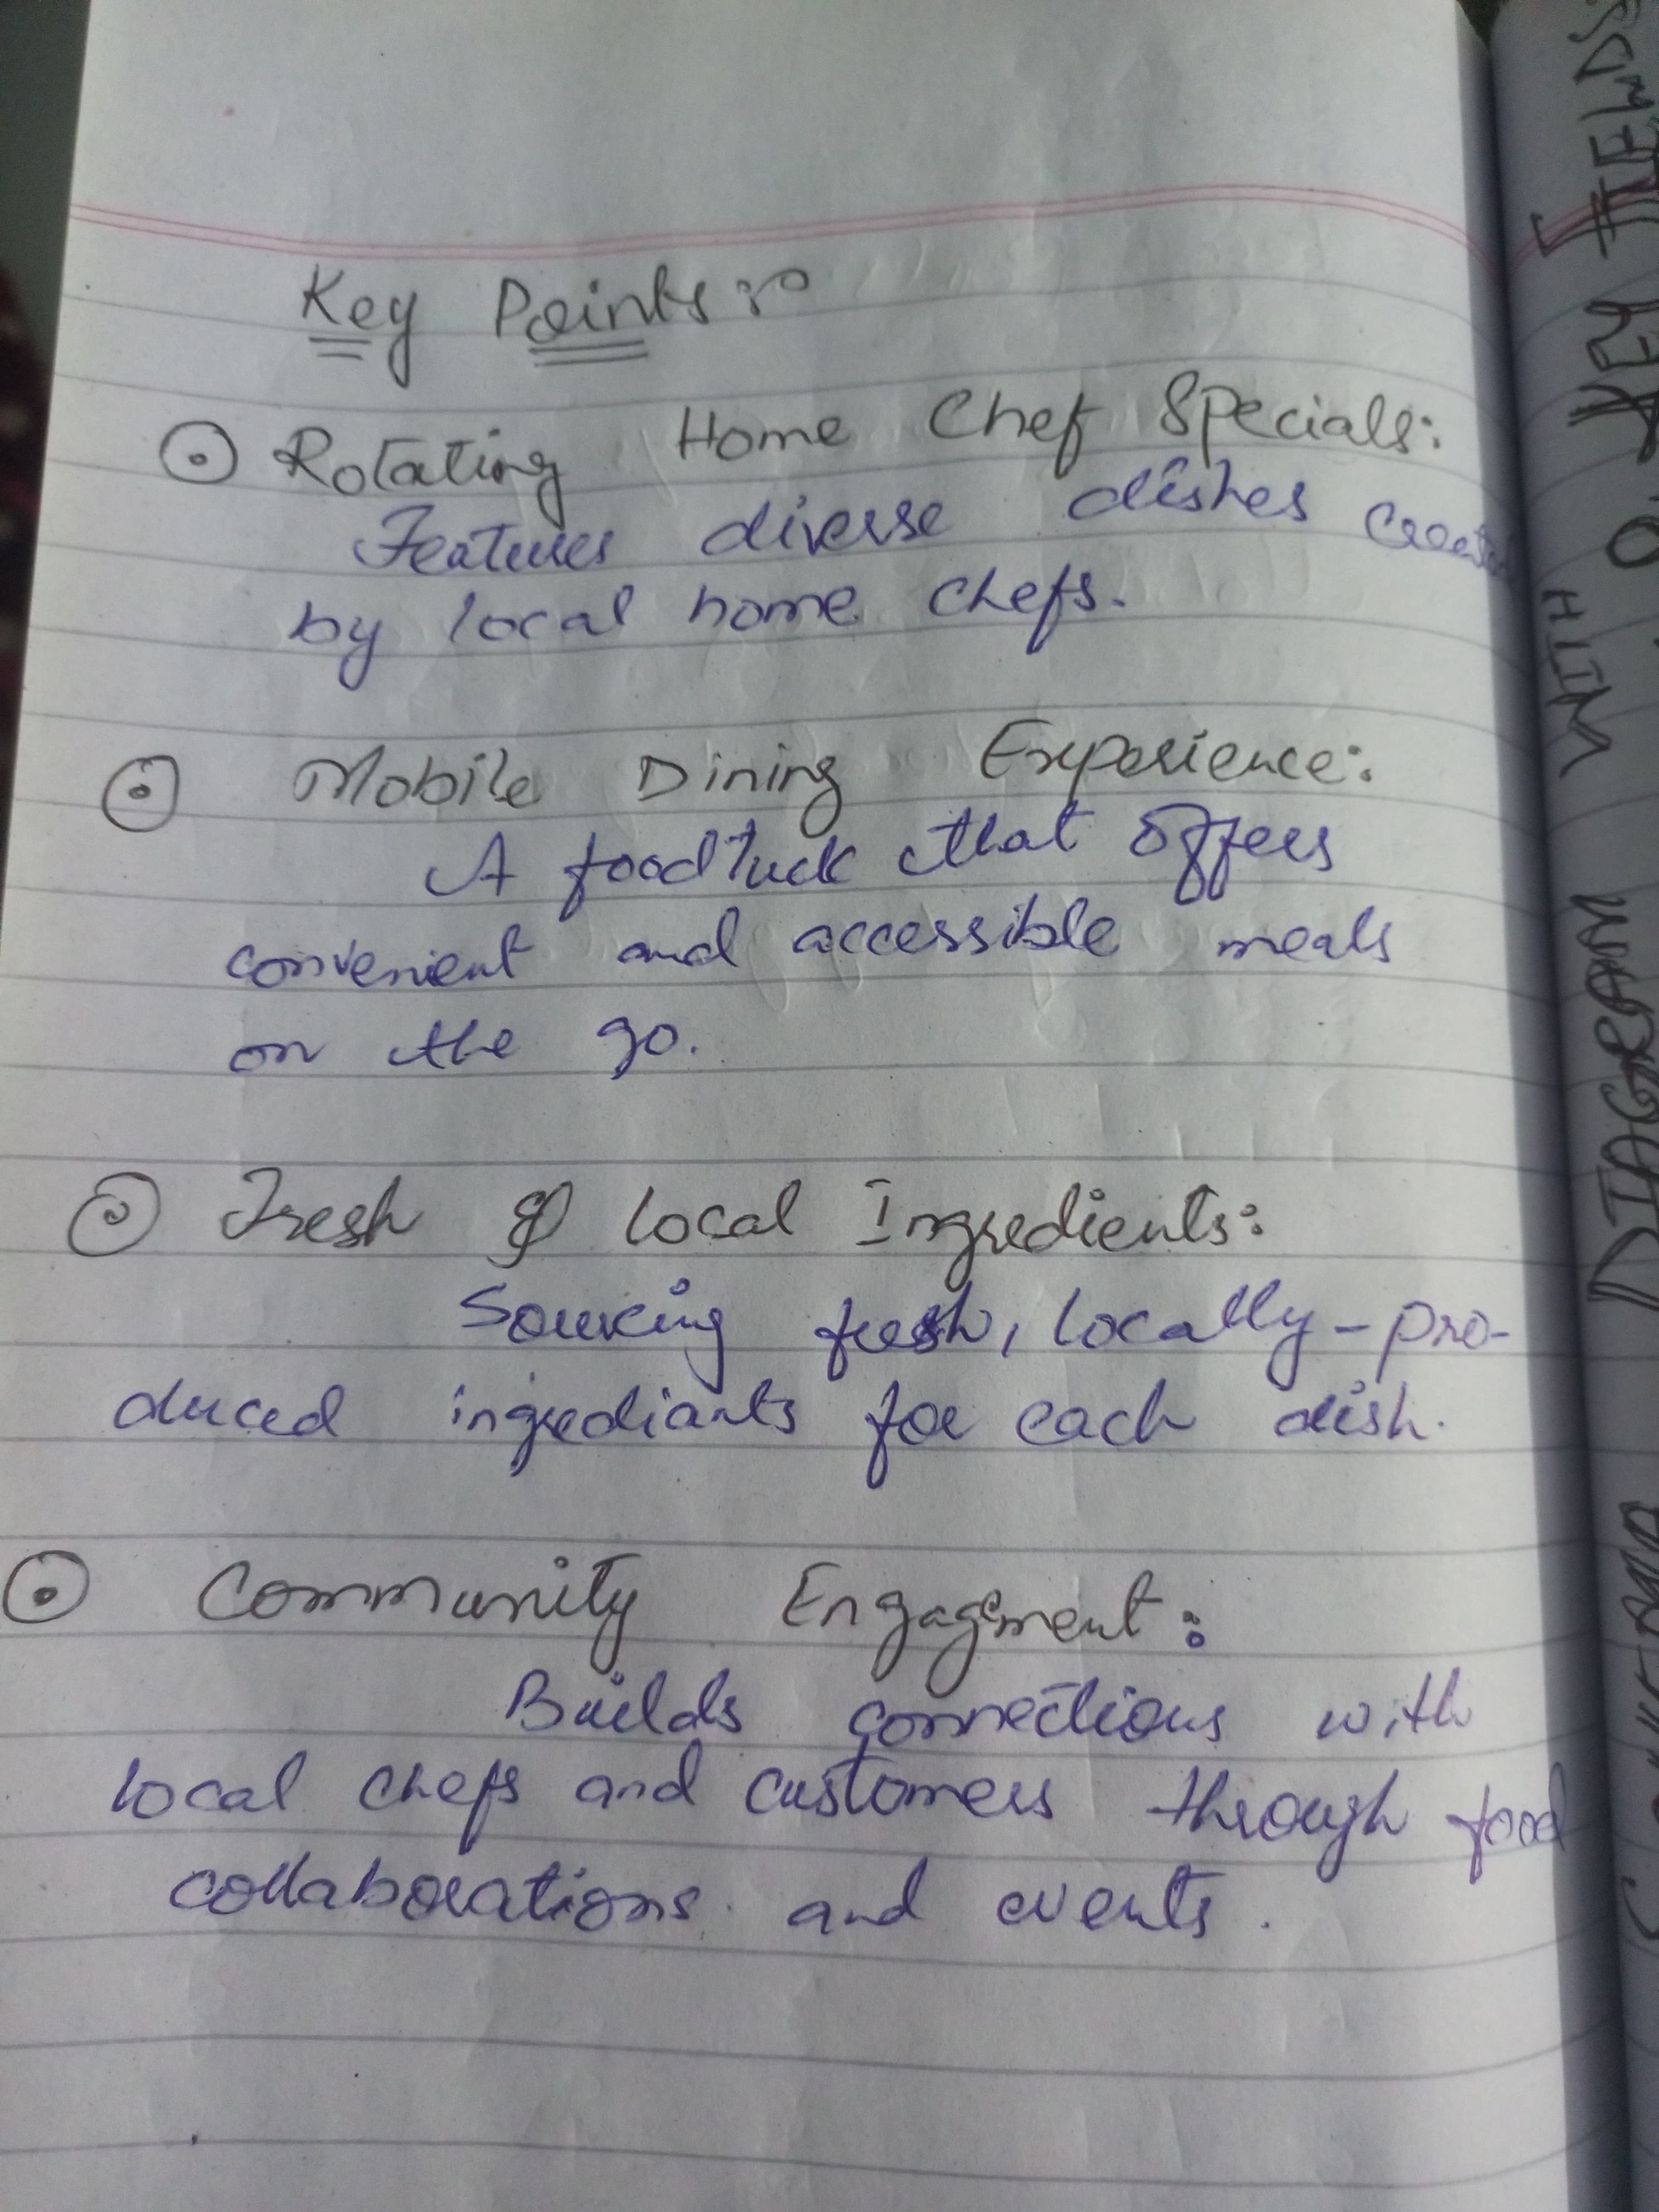 Key Points:-
Rotating Home Chef Specials:
Features diverse dishes
by local home chefs.
Mobile Dining Experience:
A foodtuck that offers
convenient and accessible meals
on the go.
Fresh & local Ingredients:
Sourcing fresh, locally-pro-
duced ingrediants for each dish.
Community Engagement:
Builds connections with
local chefs and customers through food
collaborations and events.
WITH
DIAGRAM
KEY